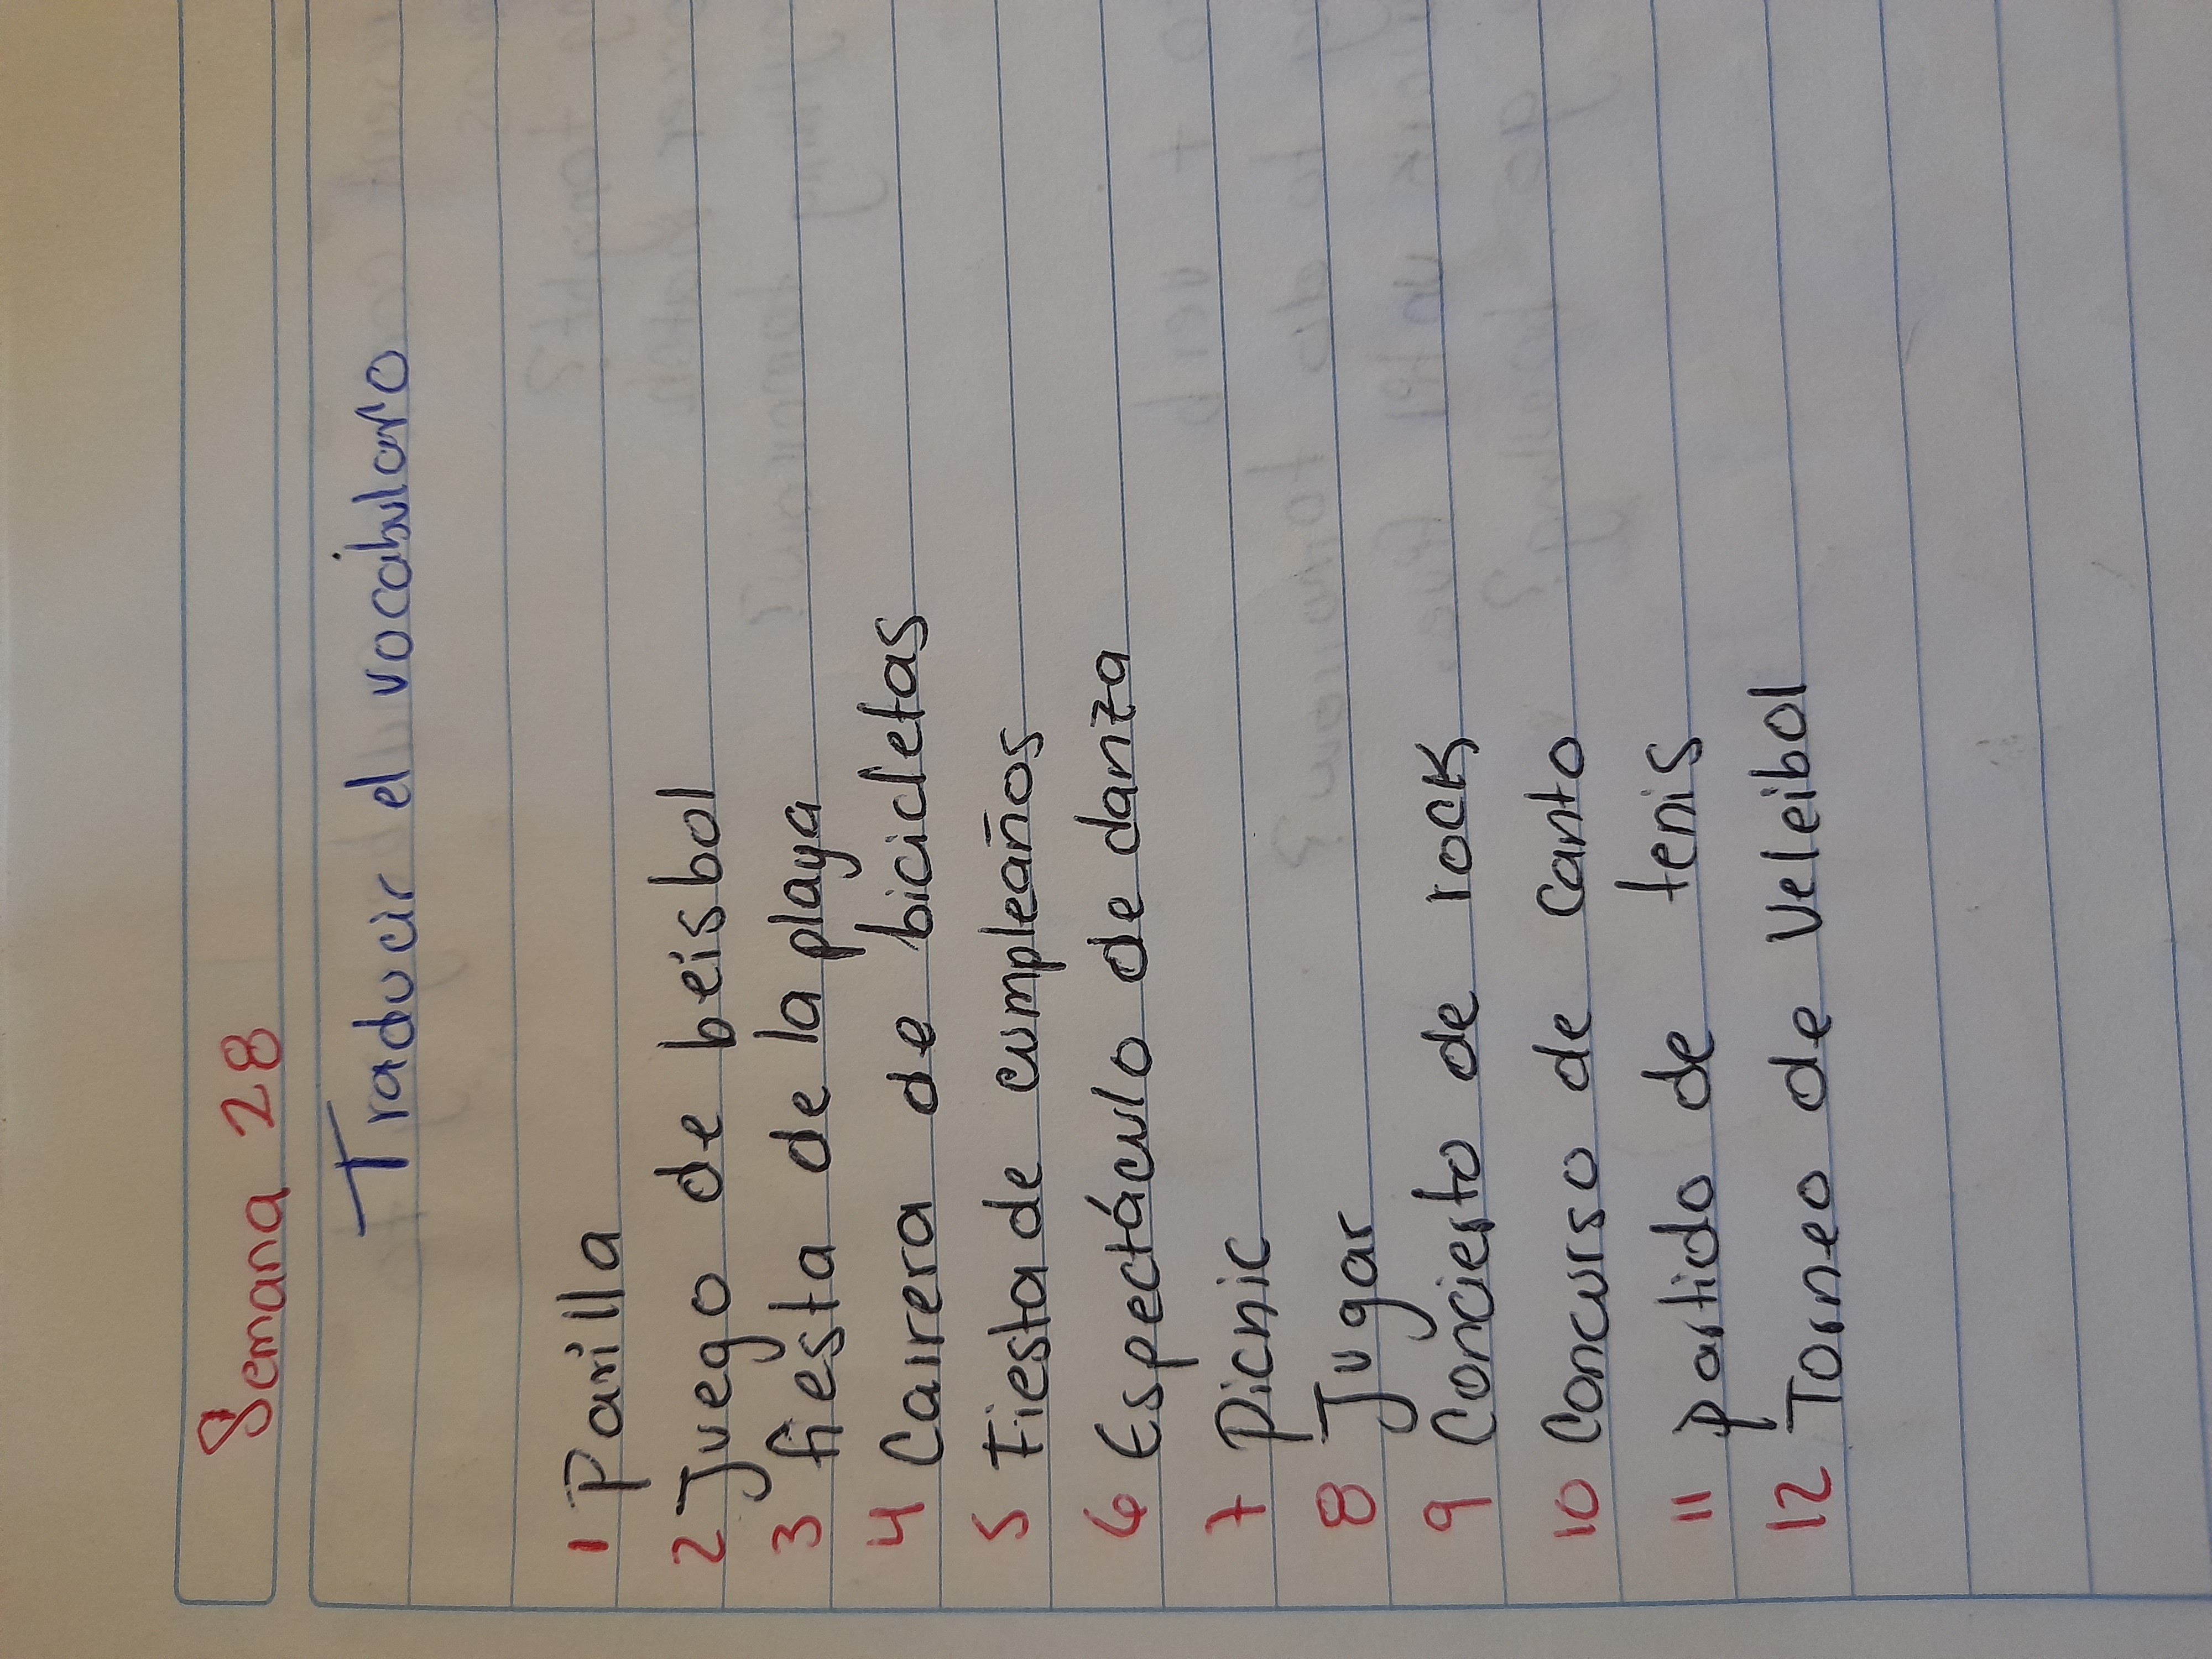 Semana 28
Traducir el vocabularo
1 Parilla
2 Juego de beisbol
3 fiesta de la playa
4 Carrera de bicicletas
5 Fiesta de cumpleaños
6 Espectáculo de danza
7 Picnic
8 Jugar
9 Concierto de rock
10 Concurso de canto
11 partido de tenis
12 Torneo de Veleibol